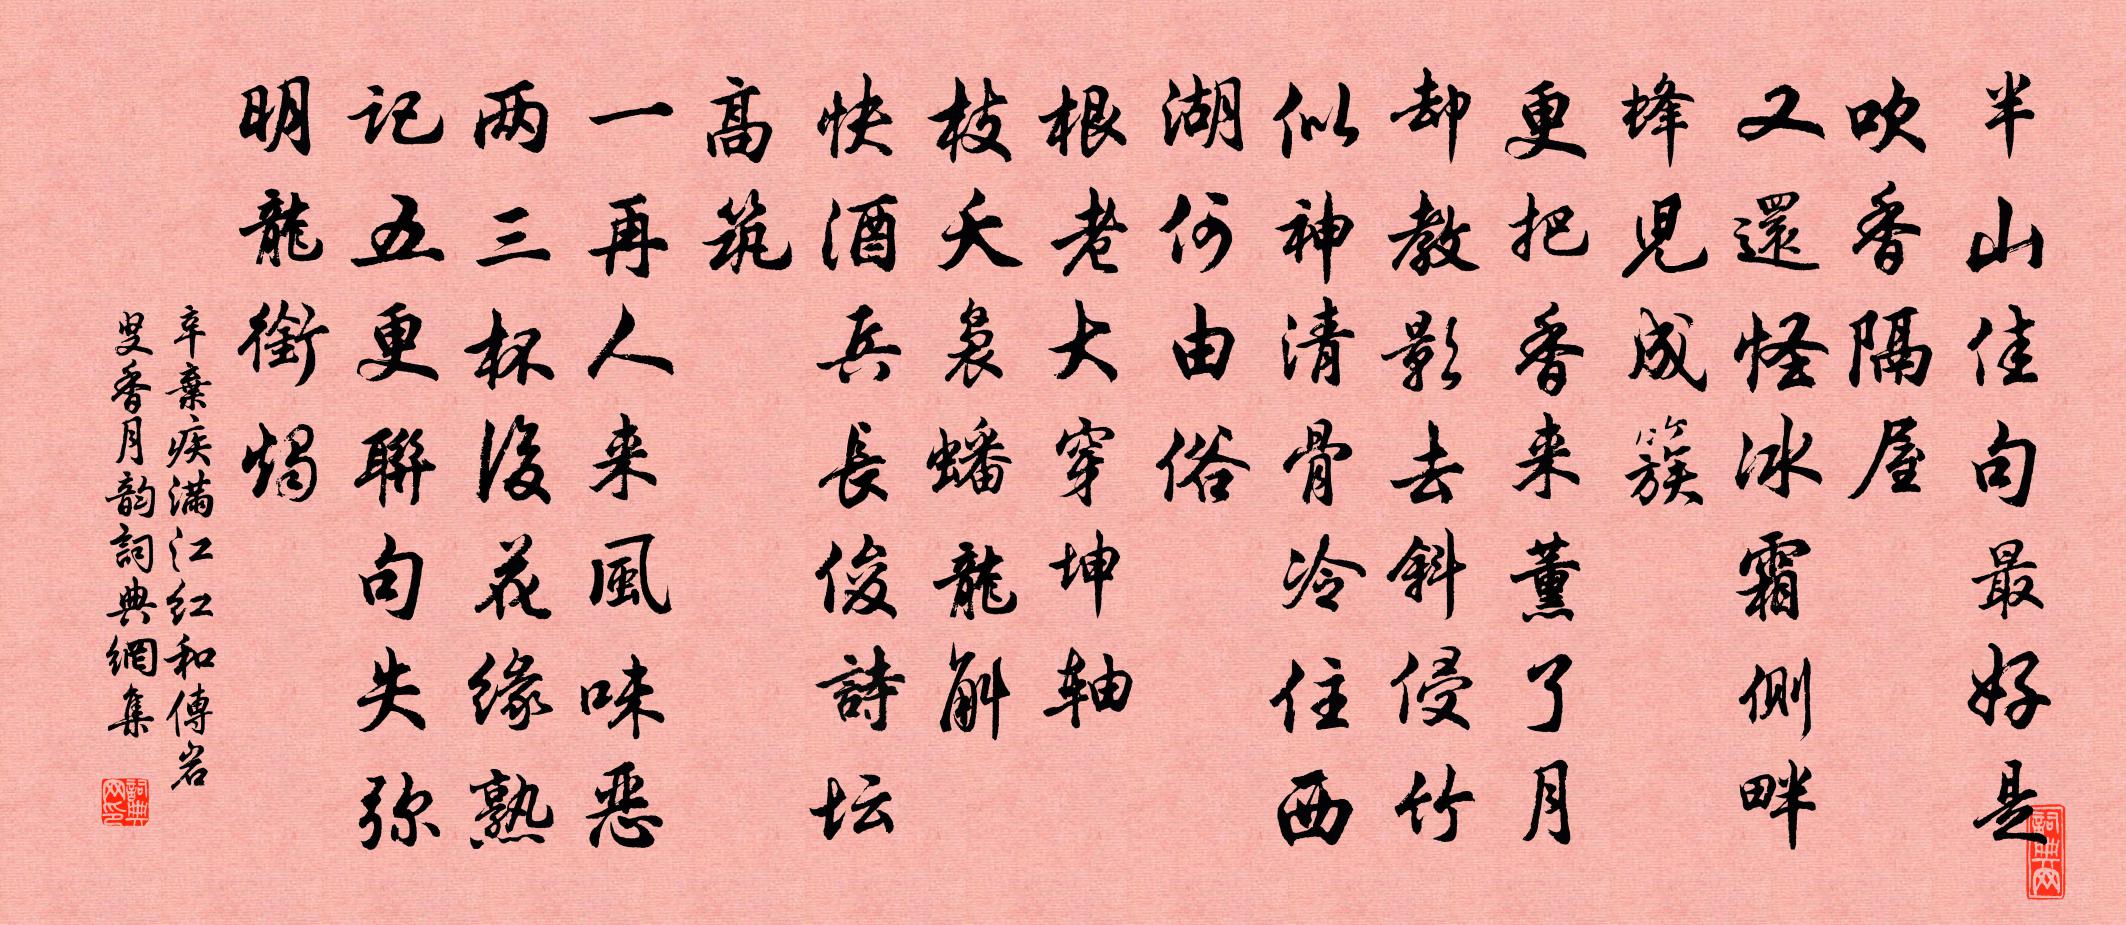 半山佳句最好是
吹香隔屋
又還怪冰霜側畔
蜂兒成簇
更把香来薰了月
却教影去斜侵竹
似神清骨冷住西
湖何由俗
根老大穿坤轴
枝夭裊蟠龍斛
快酒兵長俊詩坛
高筑
一再人来風味恶
两三杯後花缘熟
记五更聯句失弥
明龍銜燭
辛棄疾满江红和傅岩
叟香月韵詞典網集
詞典网
詞典网印